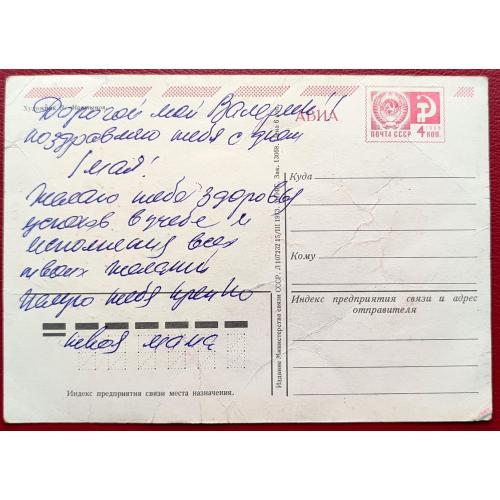 Художник
Дорогой мой Валерик!
поздравляю тебя с днем
1 мая!
Желаю тебе здоровья
успехов в учебе и
исполнения всех
твоих желаний
Целую тебя крепко
твоя мама
Индекс предприятия связи места назначения.
Издание Министерства связи СССР. 15/III 1973. Зак. 13068. Цена 6 коп.
АВИА
ПОЧТА СССР
4 КОП.
Куда
Кому
Индекс предприятия связи и адрес
отправителя